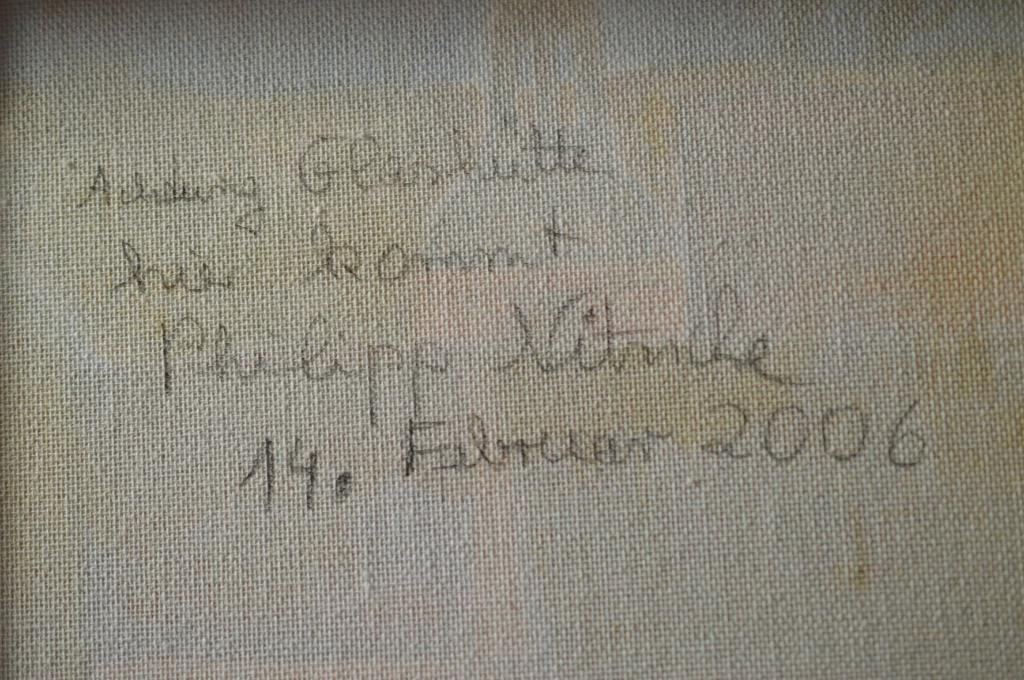 Achtung Glashütte
hier kommt
Philipp
14. Februar 2006